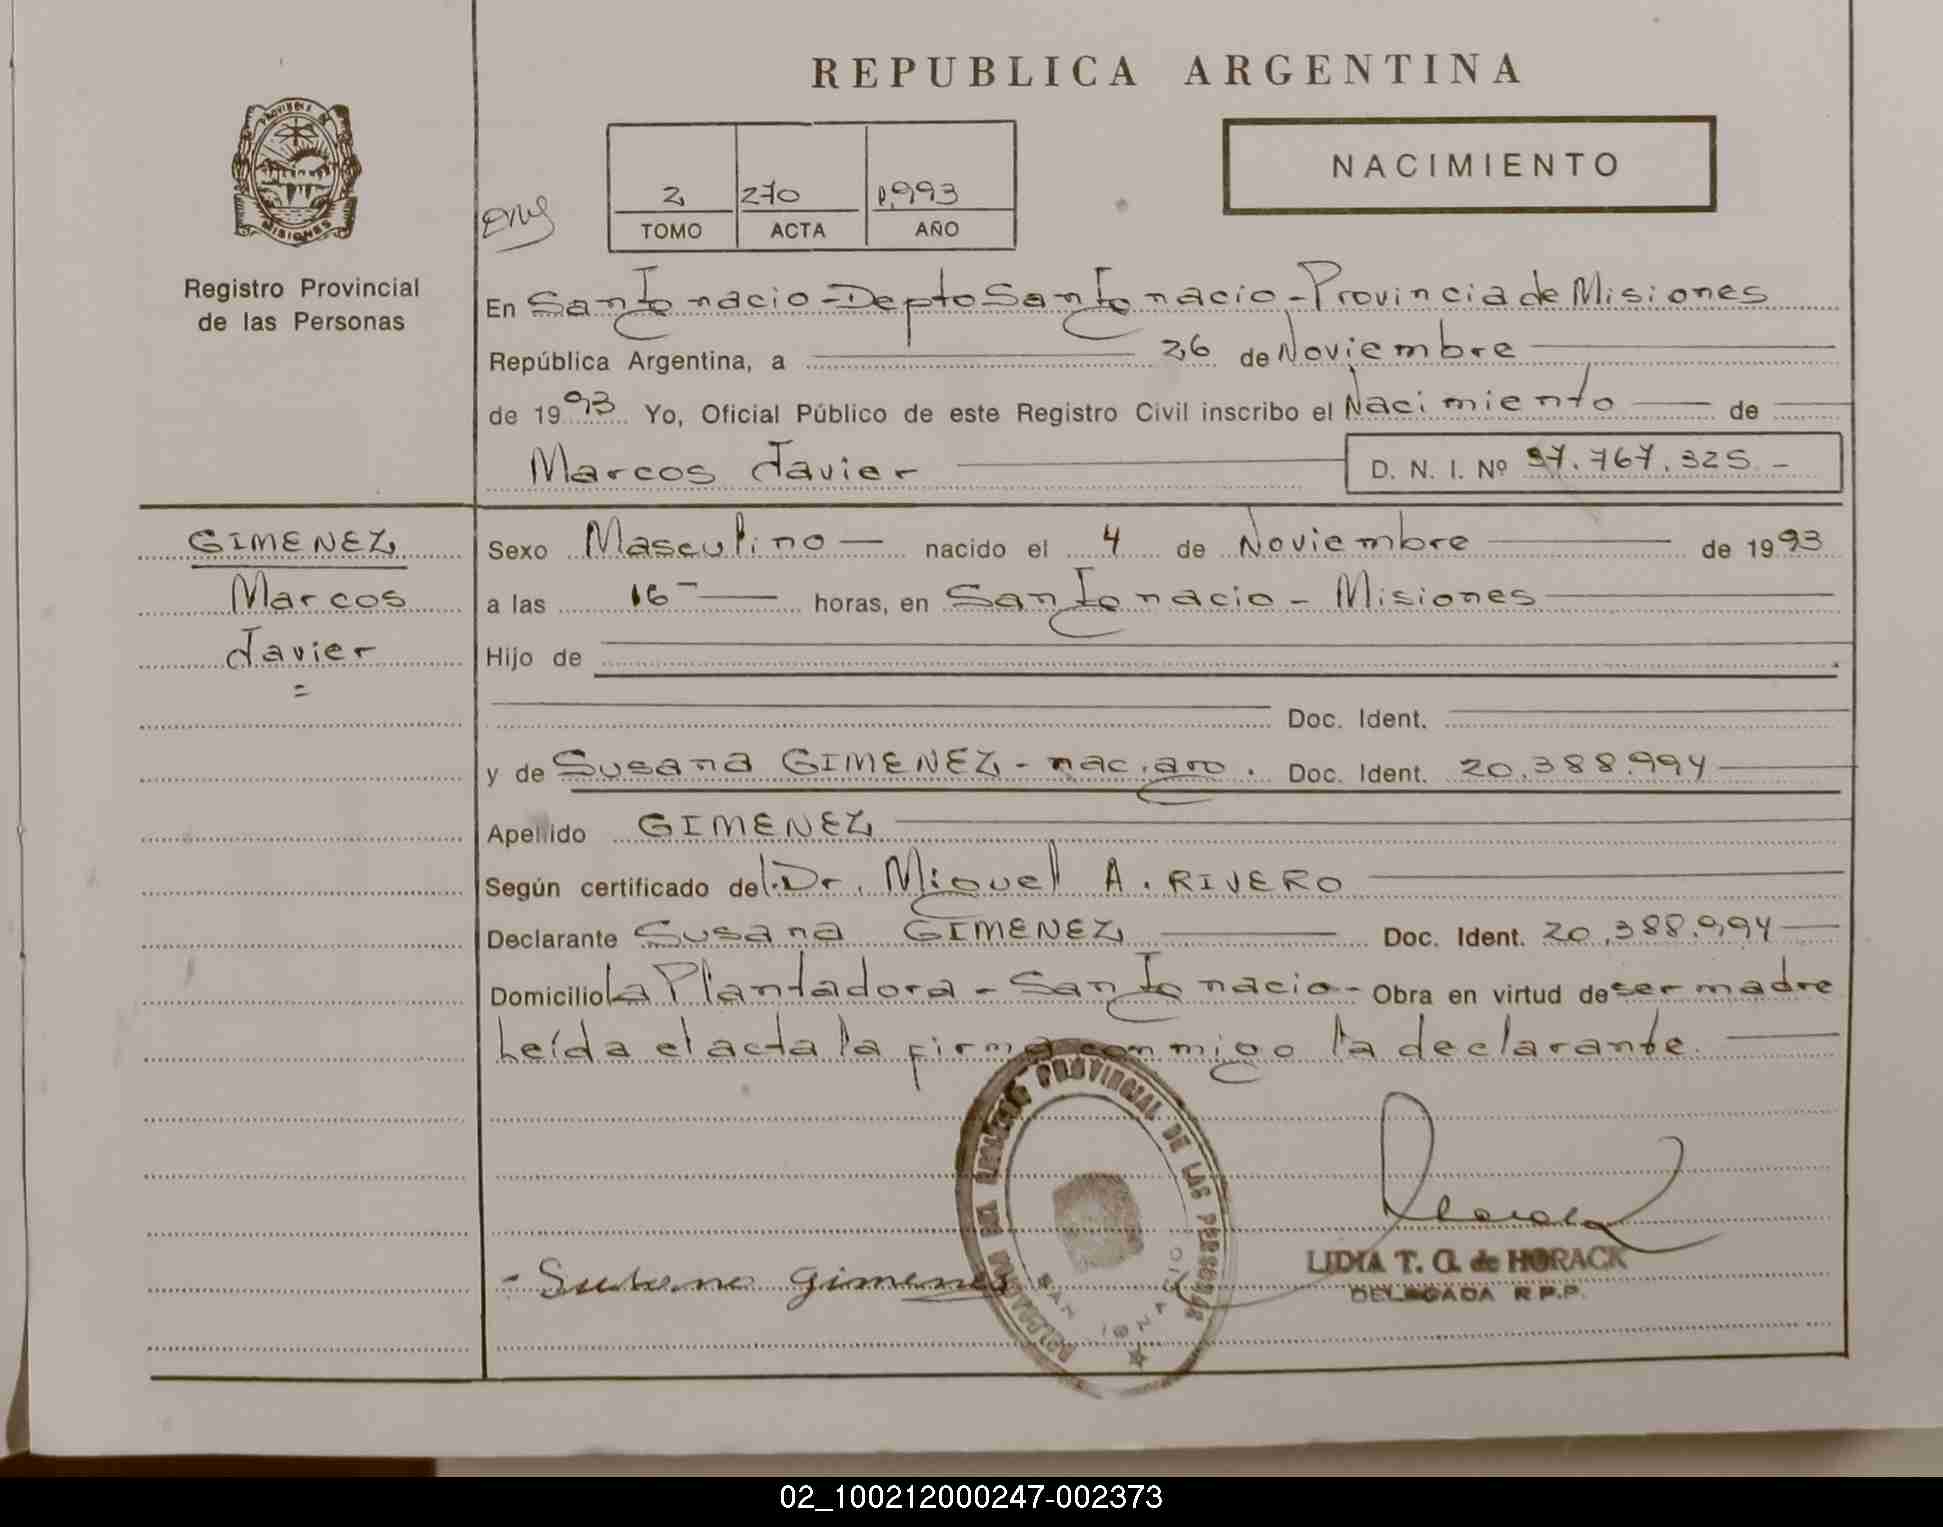 REPUBLICA ARGENTINA
PROVINCIA DE
MISIONES
Registro Provincial
de las Personas
2 270 1.993
TOMO ACTA AÑO
NACIMIENTO
En San Ignacio - Depto San Ignacio - Provincia de Misiones
República Argentina, a 26 de Noviembre
de 1993 Yo, Oficial Público de este Registro Civil inscribo el Nacimiento de
Marcos Javier D. N. I. Nº 37.767.325 -
GIMENEZ
Marcos
Javier
=
Sexo Masculino nacido el 4 de Noviembre de 1993
a las 16 horas, en San Ignacio - Misiones
Hijo de
Doc. Ident.
y de Susana GIMENEZ - nac. arg. Doc. Ident. 20.388.994
Apellido GIMENEZ
Según certificado del Dr. Miguel A. RIVERO
Declarante Susana GIMENEZ Doc. Ident. 20.388.994
Domicilio La Plantadora - San Ignacio - Obra en virtud de ser madre
Leída el acta la firma conmigo la declarante.
REGISTRO PROVINCIAL DE LAS PERSONAS
SAN IGNACIO
- Susana Gimenes
LIDIA T. G. de HORACK
DELEGADA R.P.P.
02_100212000247-002373